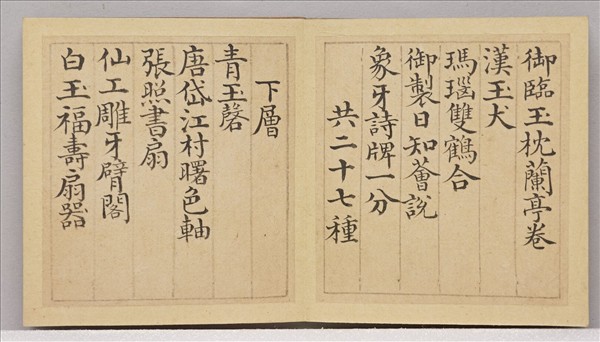 御臨玉枕蘭亭卷
漢玉犬
瑪瑙雙鶴合
御製日知薈說
象牙詩牌一分
共二十七種
下層
青玉磬
唐岱江村曙色軸
張照書扇
仙工雕牙臂閣
白玉福壽扇器